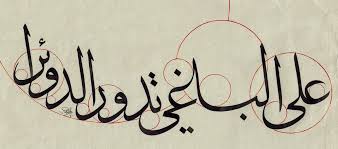 على الباغي تدور الدوئر